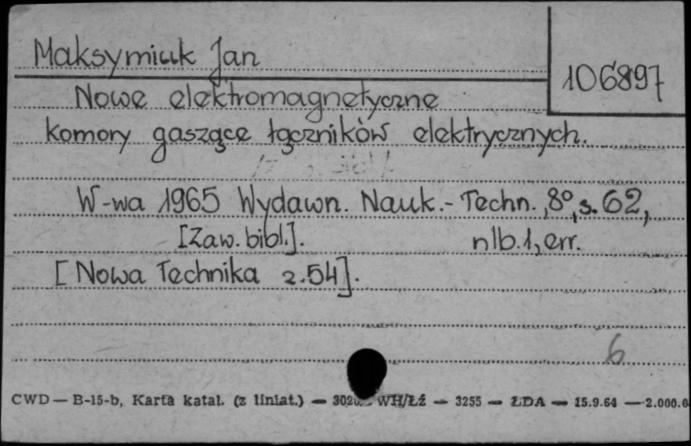 Maksymiuk Jan
106897
Nowe elektromagnetyczne
komory gaszące łączników elektrycznych.
W-wa 1965 Wydawn. Nauk.-Techn., 8°, s. 62,
[Zaw. bibl.]. nlb. 1, err.
[Nowa Technika z. 54].
6
CWD — B-15-b, Karta katal. (z liniat.) — WH/Łź — 3255 — ŁDA — 15.9.64 — 2.000.0